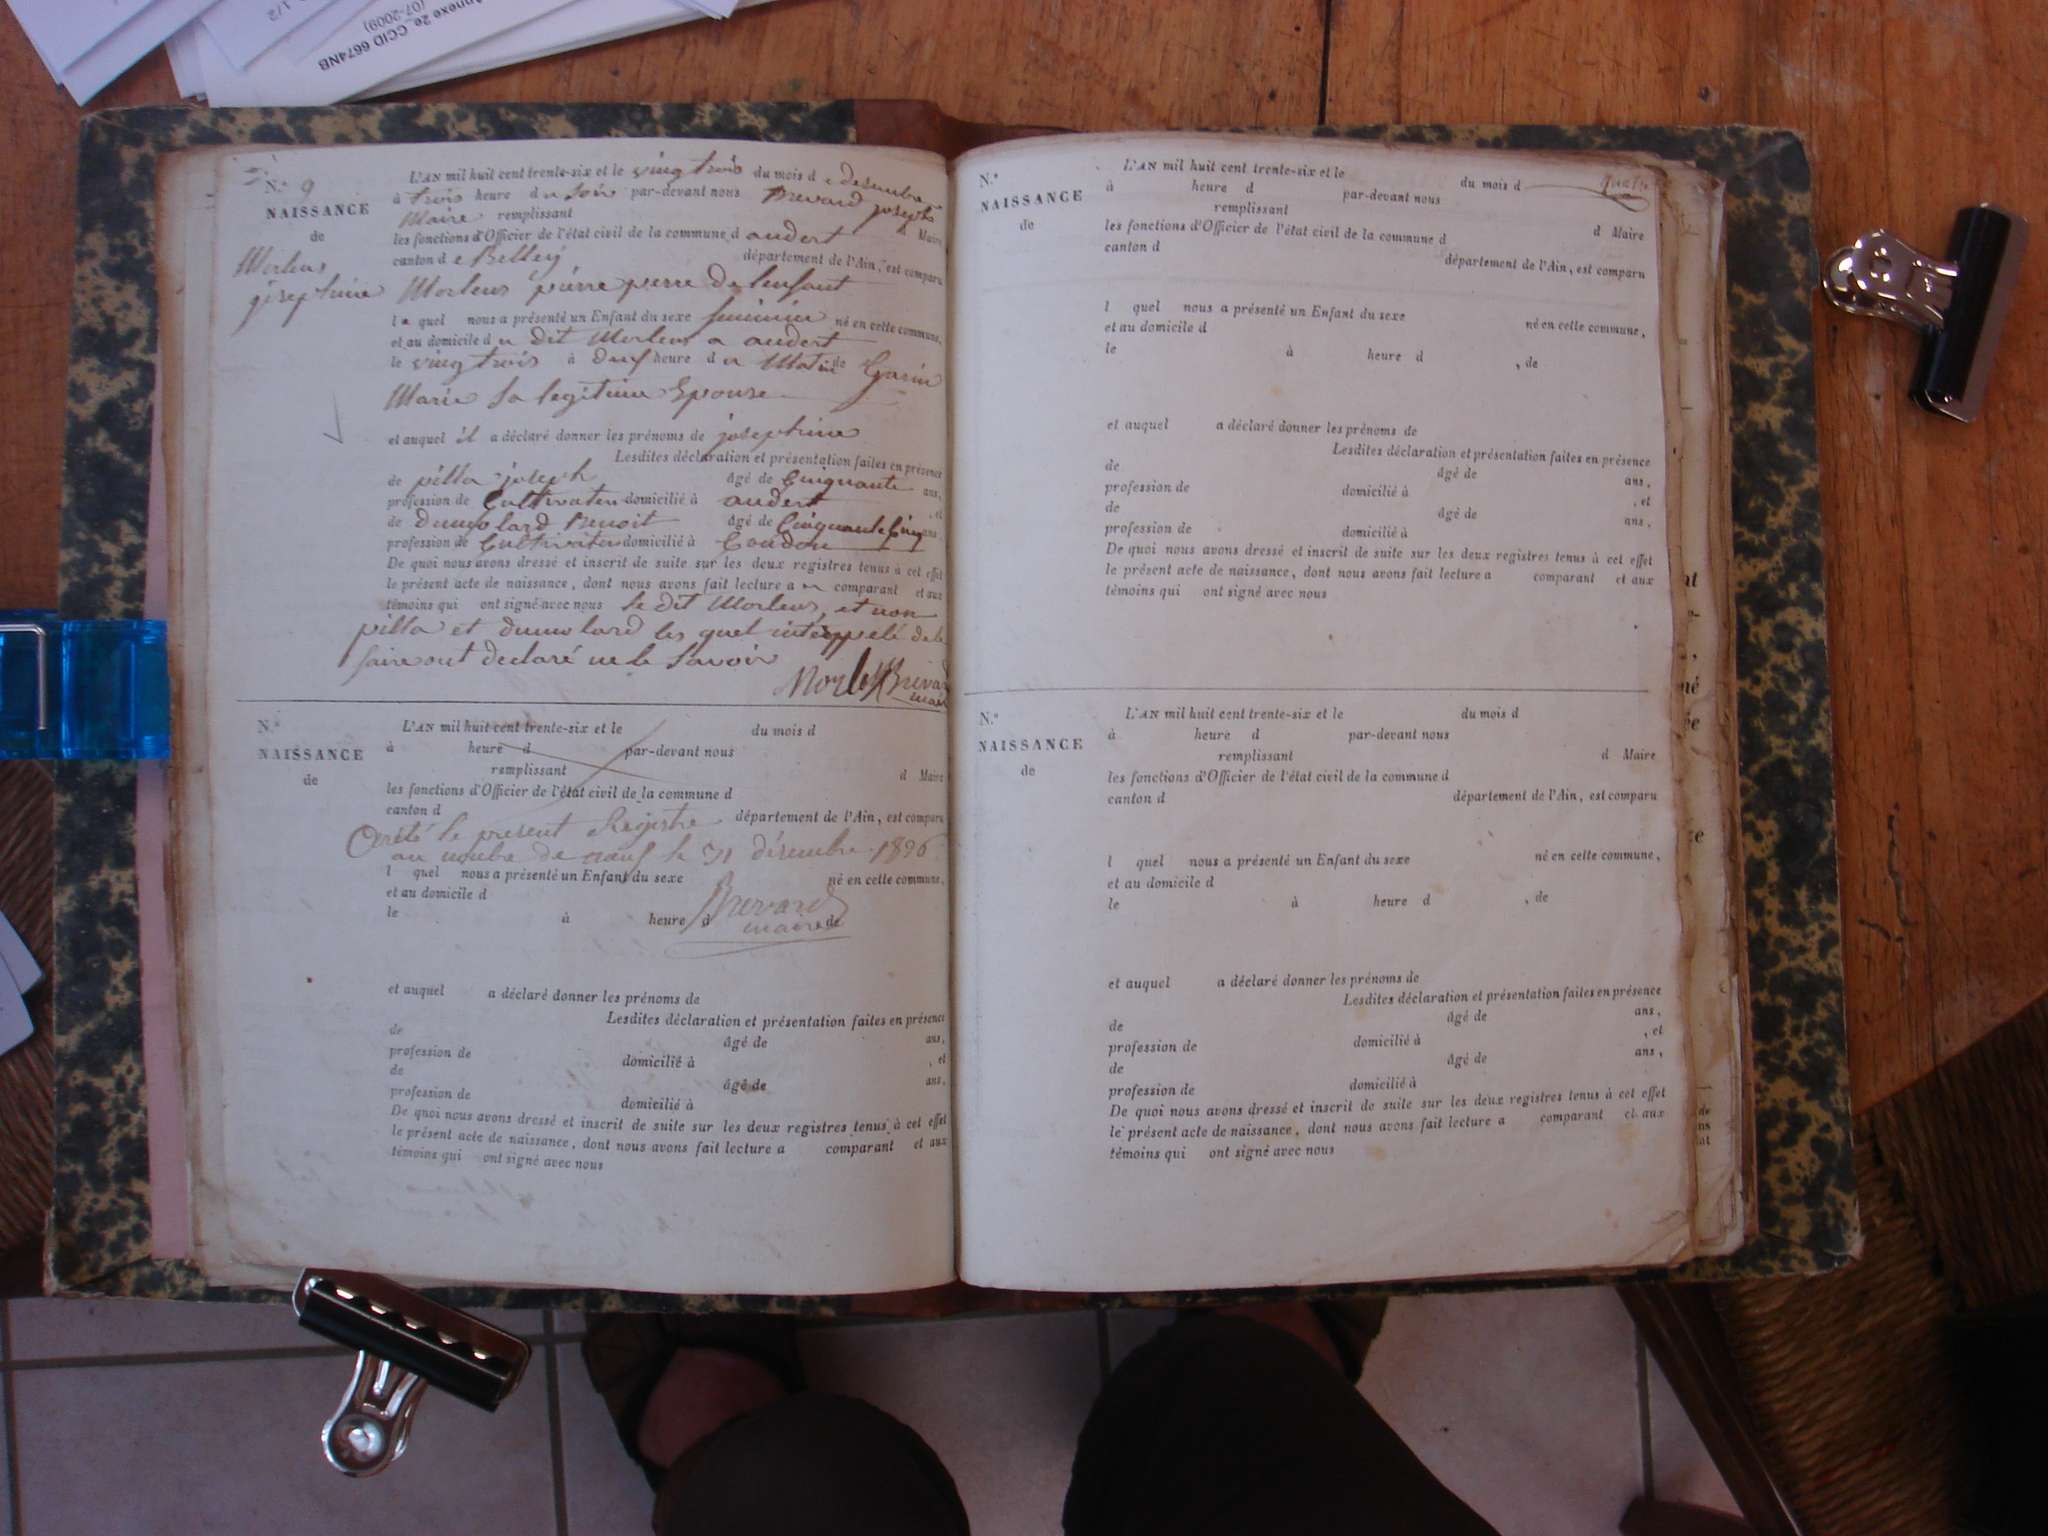 Annexe 2e_CCID 6674NB
(07-2009)
1/2
N.° 9
NAISSANCE
de
Morleus
josephine
L'AN mil huit cent trente-six et le vingtrois du mois de desembre
à trois heure du soir par-devant nous Brevard joseph
Maire remplissant d Maire
les fonctions d'Officier de l'état civil de la commune d andert
canton de Belley département de l'Ain, est comparu
Morleus pierre perre de lenfant
le quel nous a présenté un Enfant du sexe feminin né en cette commune,
et au domicile du dit Morleus a andert
le vingtrois à deux heure du Matin de Garin
Marie sa legitime Epouse
et auquel il a déclaré donner les prénoms de josephine
Lesdites déclaration et présentation faites en présence
de pilla joseph âgé de Cinquante ans,
profession de Cultivateur domicilié à andert , et
de dumolard Benoit âgé de Cinquante Cinq ans,
profession de Cultivateur domicilié à Condon
De quoi nous avons dressé et inscrit de suite sur les deux registres tenus à cet effet
le présent acte de naissance, dont nous avons fait lecture au comparant et aux
témoins qui ont signé avec nous le dit Morleus, et non
pilla et dumolard les quel interppelé de le
faire ont declaré ne le savoir
Brevard
maire
N.°
NAISSANCE
de
L'AN mil huit cent trente-six et le du mois d
à heure d par-devant nous
remplissant d Maire
les fonctions d'Officier de l'état civil de la commune d
canton d département de l'Ain, est comparu
Arêté le present Registre
au nonbre de neuf le 31 désembre 1836
l quel nous a présenté un Enfant du sexe né en cette commune,
et au domicile d Brevard
le à heure d maire de
et auquel a déclaré donner les prénoms de
Lesdites déclaration et présentation faites en présence
de âgé de ans,
profession de domicilié à , et
de âgé de ans,
profession de domicilié à
De quoi nous avons dressé et inscrit de suite sur les deux registres tenus à cet effet
le présent acte de naissance, dont nous avons fait lecture a comparant et aux
témoins qui ont signé avec nous
N.°
NAISSANCE
de
L'AN mil huit cent trente-six et le du mois d
à heure d par-devant nous
remplissant d Maire
les fonctions d'Officier de l'état civil de la commune d
canton d département de l'Ain, est comparu
l quel nous a présenté un Enfant du sexe né en cette commune,
et au domicile d
le à heure d , de
et auquel a déclaré donner les prénoms de
Lesdites déclaration et présentation faites en présence
de âgé de ans,
profession de domicilié à , et
de âgé de ans,
profession de domicilié à
De quoi nous avons dressé et inscrit de suite sur les deux registres tenus à cet effet
le présent acte de naissance, dont nous avons fait lecture a comparant et aux
témoins qui ont signé avec nous
N.°
NAISSANCE
de
L'AN mil huit cent trente-six et le du mois d
à heure d par-devant nous
remplissant d Maire
les fonctions d'Officier de l'état civil de la commune d
canton d département de l'Ain, est comparu
l quel nous a présenté un Enfant du sexe né en cette commune,
et au domicile d
le à heure d , de
et auquel a déclaré donner les prénoms de
Lesdites déclaration et présentation faites en présence
de âgé de ans,
profession de domicilié à , et
de âgé de ans,
profession de domicilié à
De quoi nous avons dressé et inscrit de suite sur les deux registres tenus à cet effet
le présent acte de naissance, dont nous avons fait lecture a comparant et aux
témoins qui ont signé avec nous